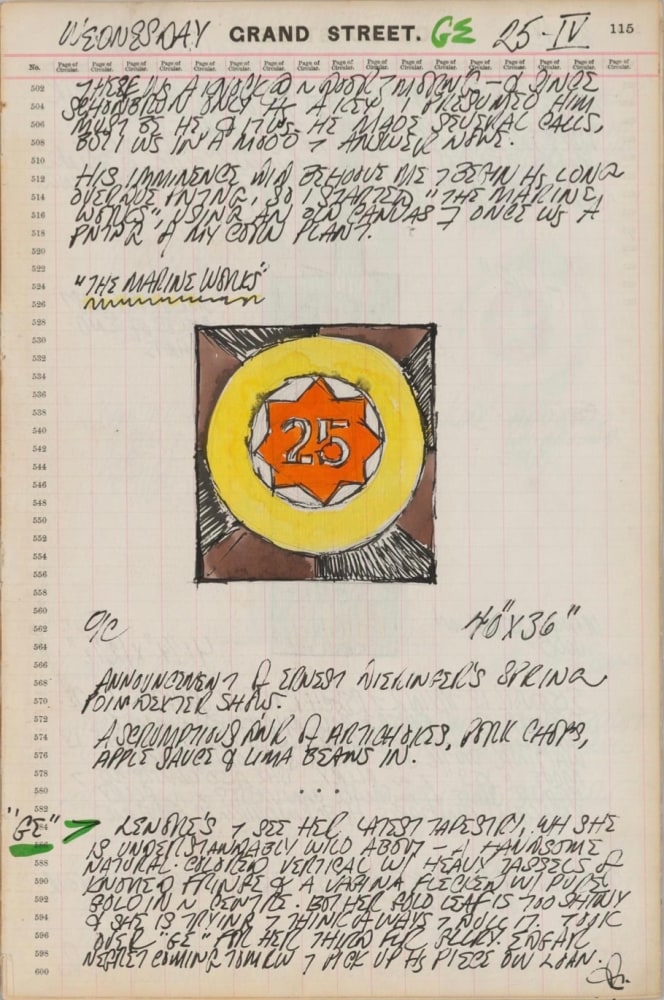 WEDNESDAY GRAND STREET. GE 25-IV 115
No. Page of Circular. Page of Circular. Page of Circular. Page of Circular. Page of Circular. Page of Circular. Page of Circular. Page of Circular. Page of Circular. Page of Circular. Page of Circular. Page of Circular. Page of Circular. Page of Circular. Page of Circular. Page of Circular. Page of Circular.
502 THERE WS A KNOCK @ N DOOR 7 MORNG – & SINCE
504 ONLY HS A KEY, I PRESUMED HIM
506 MUST BE HE & IT WS. HE MADE SEVERAL CALLS,
508 BUT I WS IN A MOOD 7 ANSWER NONE.
510
512 HIS IMMINENCE DID BEHOOVE ME 7 BEGIN HS LONG
514 OVERDUE PNTNG, SO I STARTED "THE MARINE
516 WORKS", USING AN OLD CANVAS 7 ONCE WS A
518 PNTNG OF MY CORN PLANT.
520
522
524 "THE MARINE WORKS"
526
528
530
532
534
536
538
540
542 25
544
546
548
550
552
554
556
558
560
562 O/C 40"X36"
564
566
568 ANNOUNCEMENT OF ERNEST DIERINGER'S SPRING
570 POINDEXTER SHOW.
572
574 A SCRUMPTIOUS DNR OF ARTICHOKES, PORK CHOPS,
576 APPLE SAUCE & LIMA BEANS IN.
578
580 . . .
582
584 "GE" > LENORE'S 7 SEE HER LATEST TAPESTRY, WH SHE
586 IS UNDERSTANDABLY WILD ABOUT – A HANDSOME
588 NATURAL-COLORED VERTICAL W/ HEAVY TASSELS OF
590 KNOTTED FRINGE & A VAGINA FLECKED W/ PURE
592 GOLD IN N CENTRE. BOTHER GOLD LEAF IS TOO SHINY
594 & SHE IS TRYING 7 THINK OF WAYS 7 DULL IT. TOOK
596 OVER "GE" FOR HER THIRD FLR
598 COMING TOMRW 7 PICK UP HS PIECE ON LOAN.
600